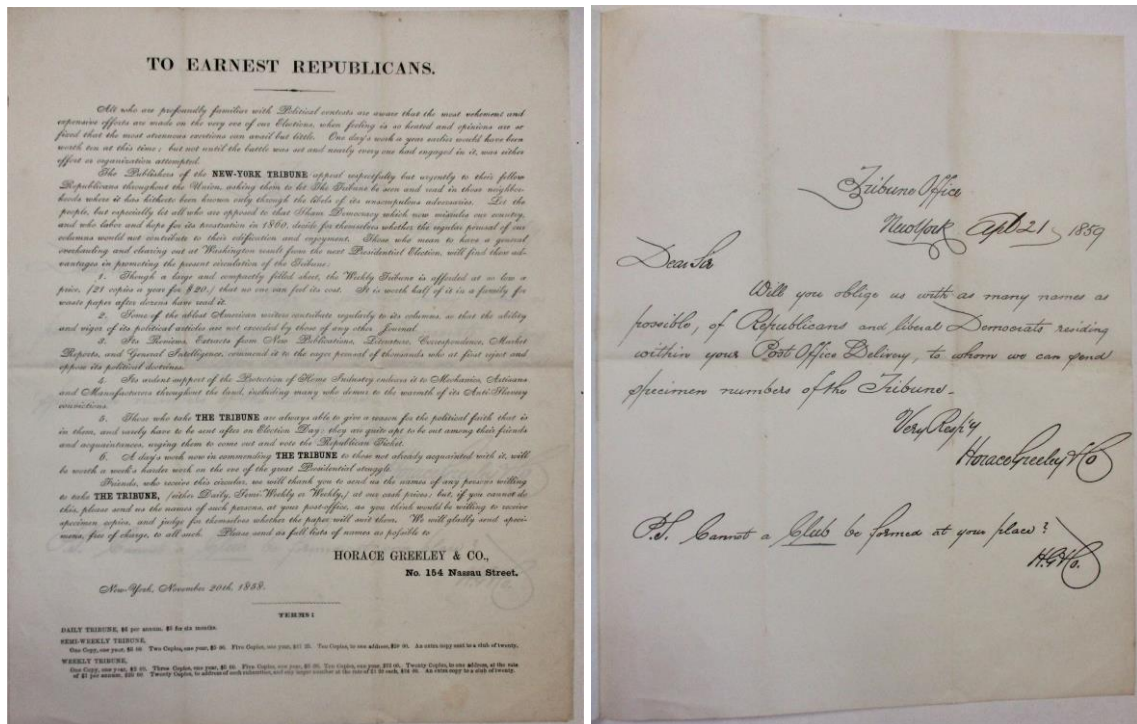 TO EARNEST REPUBLICANS.
All who are profoundly familiar with Political contests are aware that the most vehement and
expensive efforts are made on the very eve of our Elections, when feeling is so heated and opinions are so
fixed that the most strenuous exertions can avail but little. One day's work a year earlier would have been
worth ten at this time; but not until the battle was set and nearly every one had engaged in it, was either
effort or organization attempted.
The Publishers of the NEW-YORK TRIBUNE appeal respectfully but urgently to their fellow
Republicans throughout the Union, asking them to let The Tribune be seen and read in those neighbor-
hoods where it has hitherto been known only through the libels of its unscrupulous adversaries. Let the
people, but especially let all who are opposed to that Sham Democracy which now misrules our country,
and who labor and hope for its prostration in 1860, decide for themselves whether the regular perusal of our
columns would not contribute to their edification and enjoyment. Those who mean to have a general
overhauling and clearing out at Washington result from the next Presidential Election, will find these ad-
vantages in promoting the present circulation of the Tribune:
1. Though a large and compactly filled sheet, the Weekly Tribune is afforded at so low a
price, (21 copies a year for $20,) that no one can feel its cost. It is worth half of it in a family for
waste paper after dozens have read it.
2. Some of the ablest American writers contribute regularly to its columns, so that the ability
and vigor of its political articles are not exceeded by those of any other Journal.
3. Its Reviews, Extracts from New Publications, Literature, Correspondence, Market
Reports, and General Intelligence, commend it to the eager perusal of thousands who at first reject and
oppose its political doctrines.
4. Its ardent support of the Protection of Home Industry endears it to Mechanics, Artisans
and Manufacturers throughout the land, including many who demur to the warmth of its Anti-Slavery
convictions.
5. Those who take THE TRIBUNE are always able to give a reason for the political faith that is
in them, and rarely have to be sent after on Election Day; they are quite apt to be out among their friends
and acquaintances, urging them to come out and vote the Republican Ticket.
6. A day's work now in commending THE TRIBUNE to those not already acquainted with it, will
be worth a week's harder work on the eve of the great Presidential struggle.
Friends, who receive this circular, we will thank you to send us the names of any persons willing
to take THE TRIBUNE, (either Daily, Semi-Weekly or Weekly,) at our cash prices; but, if you cannot do
this, please send us the names of such persons, at your post-office, as you think would be willing to receive
specimen copies, and judge for themselves whether the paper will suit them. We will gladly send speci-
mens, free of charge, to all such. Please send as full lists of names as possible to
HORACE GREELEY & CO.,
No. 154 Nassau Street.
New-York, November 20th, 1858.
TERMS:
DAILY TRIBUNE, $6 per annum, $3 for six months.
SEMI-WEEKLY TRIBUNE,
One Copy, one year, $3 00. Two Copies, one year, $5 00. Five Copies, one year, $11 25. Ten Copies, to one address, $20 00. An extra copy sent to a club of twenty.
WEEKLY TRIBUNE,
One Copy, one year, $2 00. Three Copies, one year, $5 00. Five Copies, one year, $8 00. Ten Copies, one year, Twenty Copies, to one address, at the rate
of $1 per annum, $20 00. Twenty Copies, to address of each subscriber, and any larger number at the rate of each, $24 00. An extra copy to a club of twenty.
Tribune Office
New York Apl 21 1859
Dear Sir
Will you oblige us with as many names as
possible, of Republicans and liberal Democrats residing
within your Post Office Delivery, to whom we can send
specimen numbers of the Tribune.
Very Resp'y
Horace Greeley & Co
P.S. Cannot a Club be formed at your place?
H.G. & Co.